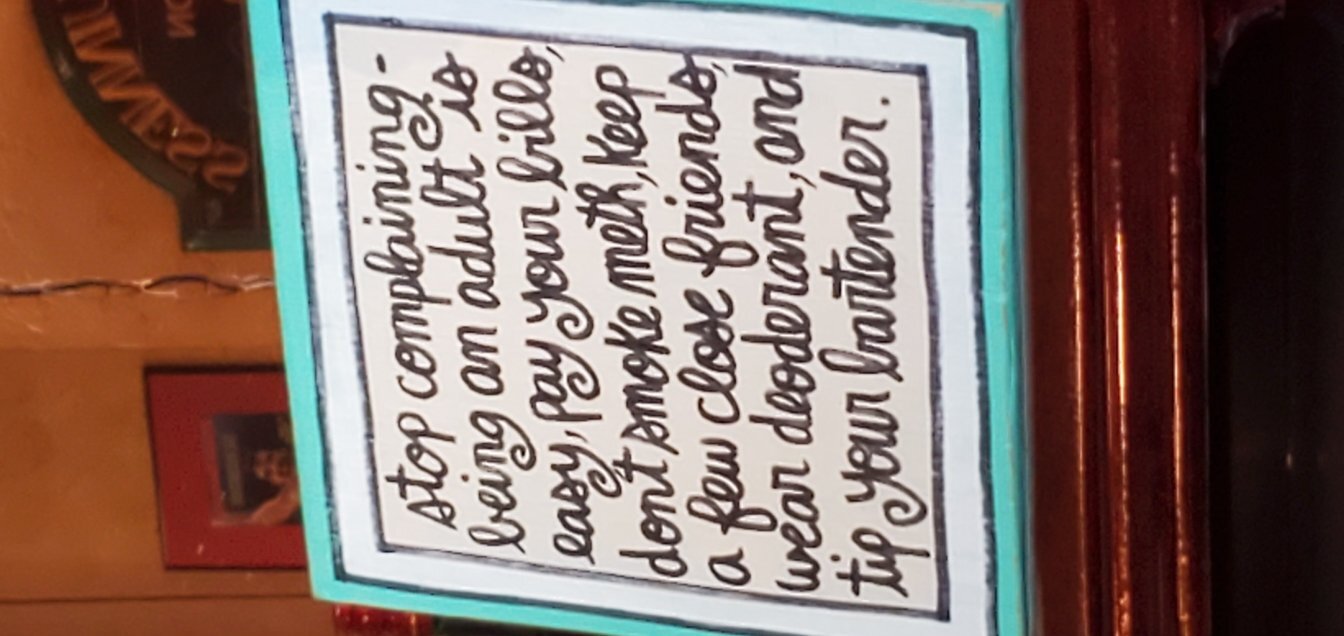 stop complaining-
being an adult is
easy, pay your bills,
dont smoke meth, keep
a few close friends,
wear deoderant, and
tip your bartender.